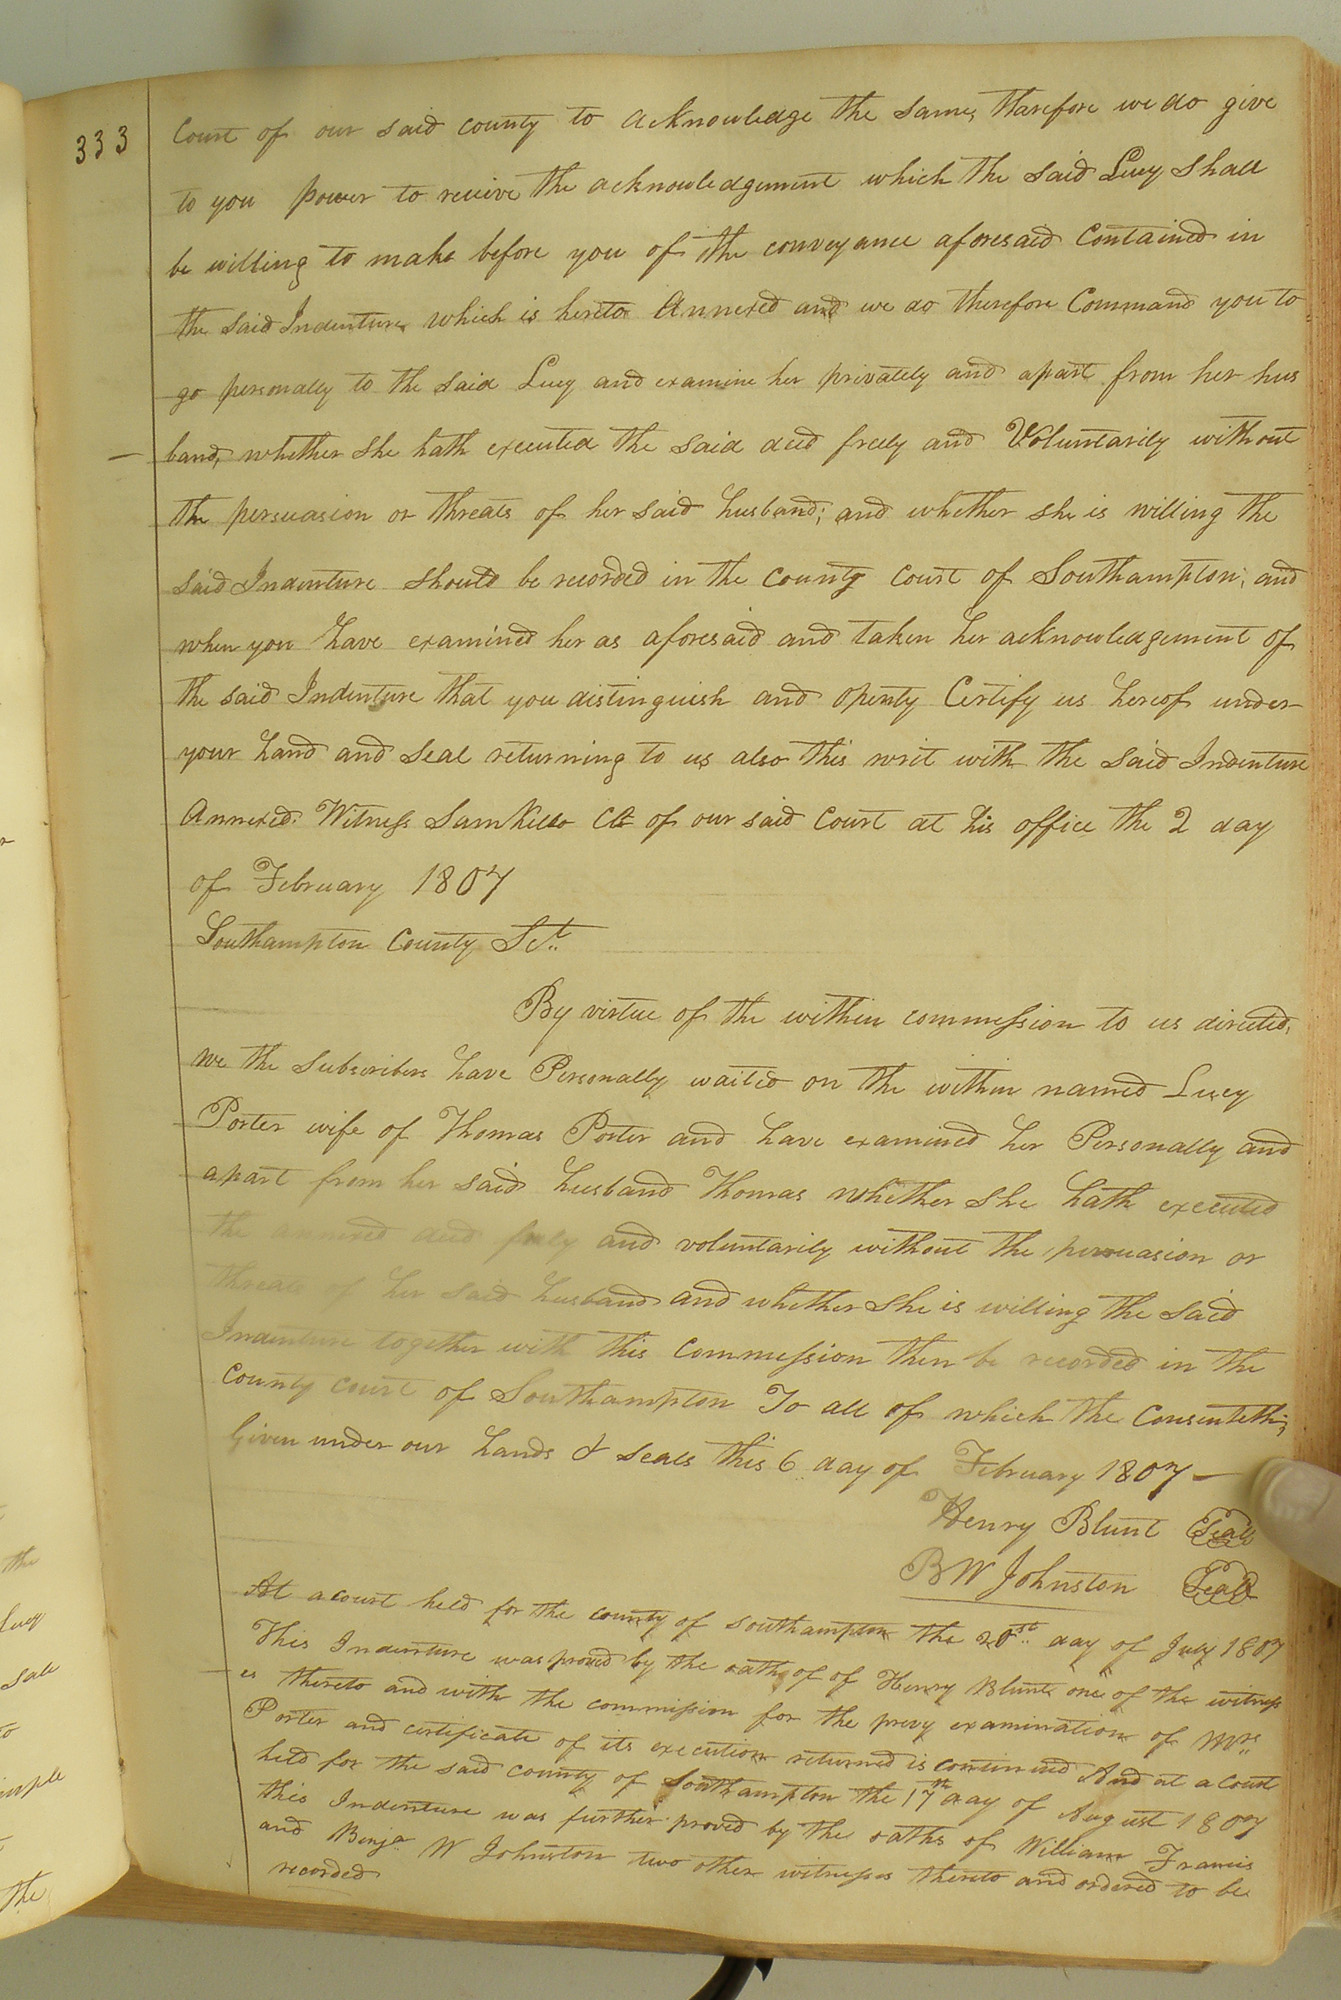 333
Court of our said county to acknowledge the same, tharefore we do give
to you power to receive the acknowledgement which the said Lucy Shall
be willing to make before you of the conveyance aforesaid Contained in
the said Indenture, which is hereto Annexed and we do therefore Command you to
go personally to the said Lucy and examine her privately and apart from her hus
band, whether she hath executed the said deed freely and Voluntarily without
the persuasion or threats of her said husband; and whether she is willing the
said Indenture should be recorded in the county court of Southampton; and
when you have examined her as aforesaid and taken her acknowledgement of
the said Indenture that you distinguish and openly Certify us hereof under
your hand and seal returning to us also this writ with the said Indenture
Annexed. Witness Sam Kello Clk of our said Court at his office the 2 day
of February 1807
Southampton County Sct.
By virtue of the within commission to us directed,
we the subscribers have Personally waited on the within named Lucy
Porter wife of Thomas Porter and have examined her Personally and
apart from her said husband Thomas whether she hath executed
the annexed deed freely and voluntarily without the persuasion or
threats of her said husband and whether she is willing the said
Indenture together with this Commission then be recorded in the
County court of Southampton To all of which the Consenteth;
Given under our hands & seals this 6 day of February 1807
Henry Blunt Seal
B W Johnston Seal
At a court held for the county of Southampton the 20st day of July 1807
This Indenture was proved by the oath of of Henry Blunt one of the witness
es thereto and with the commission for the prevy examination of Mrs
Porter and certificate of its execution returned is continued And at a Court
held for the said county of Southampton the 17th day of August 1807
this Indenture was further proved by the oaths of William Francis
and Benja W Johnston two other witnesses thereto and ordered to be
recorded
the
Lucy
sale
to
simple
the